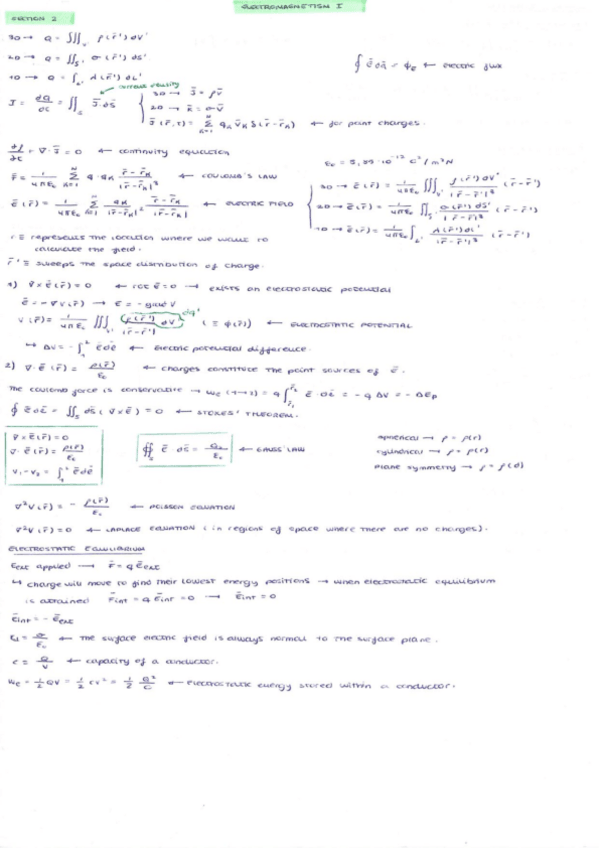 ELECTROMAGNETISM I
SECTION 2
3D → Q = ∭ᵥ' ρ(r̄')dV'
2D → Q = ∬ₛ' σ(r̄')dS'
∮ Ē dĀ = ϕₑ ← electric flux
1D → Q = ∫_L' λ(r̄')dL'
current density
I = dQ/dt = ∬ₛ J̄·dS̄ { 3D → J̄ = ρv̄
2D → K̄ = σv̄
J̄(r̄,t) = Σ_{k=1}^{N} qₖ v̄ₖ δ(r̄-r̄ₖ) ← for point charges.
∂ρ/∂t + ∇·J̄ = 0 ← continuity equation
ε₀ = 8,89·10⁻¹² C²/m²N
F̄ = 1/4πε₀ Σ_{k=1}^{N} q·qₖ (r̄-r̄ₖ)/|r̄-r̄ₖ|³ ← COULOMB'S LAW
3D → Ē(r̄) = 1/4πε₀ ∭ᵥ' ρ(r̄')dV'/|r̄-r̄'|³ (r̄-r̄')
Ē(r̄) = 1/4πε₀ Σ_{k=1}^{N} qₖ/|r̄-r̄ₖ|² (r̄-r̄ₖ)/|r̄-r̄ₖ| ← ELECTRIC FIELD
2D → Ē(r̄) = 1/4πε₀ ∬ₛ' σ(r̄')dS'/|r̄-r̄'|³ (r̄-r̄')
1D → Ē(r̄) = 1/4πε₀ ∫_L' λ(r̄')dL'/|r̄-r̄'|³ (r̄-r̄')
r ≡ represents the location where we want to
calculate the field.
r̄' ≡ sweeps the space distribution of charge.
1) ∇×Ē(r̄) = 0 ← rot Ē = 0 → EXISTS an electrostatic potential
Ē = -∇V(r̄) → E = -grad V
V(r̄) = 1/4πε₀ ∭ ρ(r̄')dV'/|r̄-r̄'| dq' (≡ ϕ(r̄)) ← ELECTROSTATIC POTENTIAL
↳ ΔV = -∫₁² Ē dl̄ ← electric potential difference.
2) ∇·Ē(r̄) = ρ(r̄)/ε₀ ← charges constitute the point sources of Ē.
The coulomb force is conservative → Wₑ(1→2) = q∫_{r̄₁}^{r̄₂} Ē·dl̄ = -qΔV = -ΔEp
∮ Ē dl̄ = ∬ₛ dS̄(∇×Ē) = 0 ← STOKES' THEOREM.
∇×Ē(r̄) = 0
∇·Ē(r̄) = ρ(r̄)/ε₀
V₁-V₂ = ∫₁² Ē dl̄
∯ₛ Ē dS̄ = Q/ε₀ ← GAUSS' LAW
spherical → ρ = ρ(r)
cylindrical → ρ = ρ(r)
plane symmetry → ρ = ρ(d)
∇²V(r̄) = - ρ(r̄)/ε₀ ← POISSON EQUATION
∇²V(r̄) = 0 ← LAPLACE EQUATION (in regions of space where there are no charges).
ELECTROSTATIC EQUILIBRIUM
Ēext applied → F̄ = qĒext
↳ charge will move to find their lowest energy positions → when electrostatic equilibrium
is attained F̄int = qĒint = 0 → Ēint = 0
Ēint = -Ēext
E⊥ = σ/ε₀ ← the surface electric field is always normal to the surface plane.
C = Q/V ← capacity of a conductor.
Wₑ = 1/2 QV = 1/2 CV² = 1/2 Q²/C ← electrostatic energy stored within a conductor.